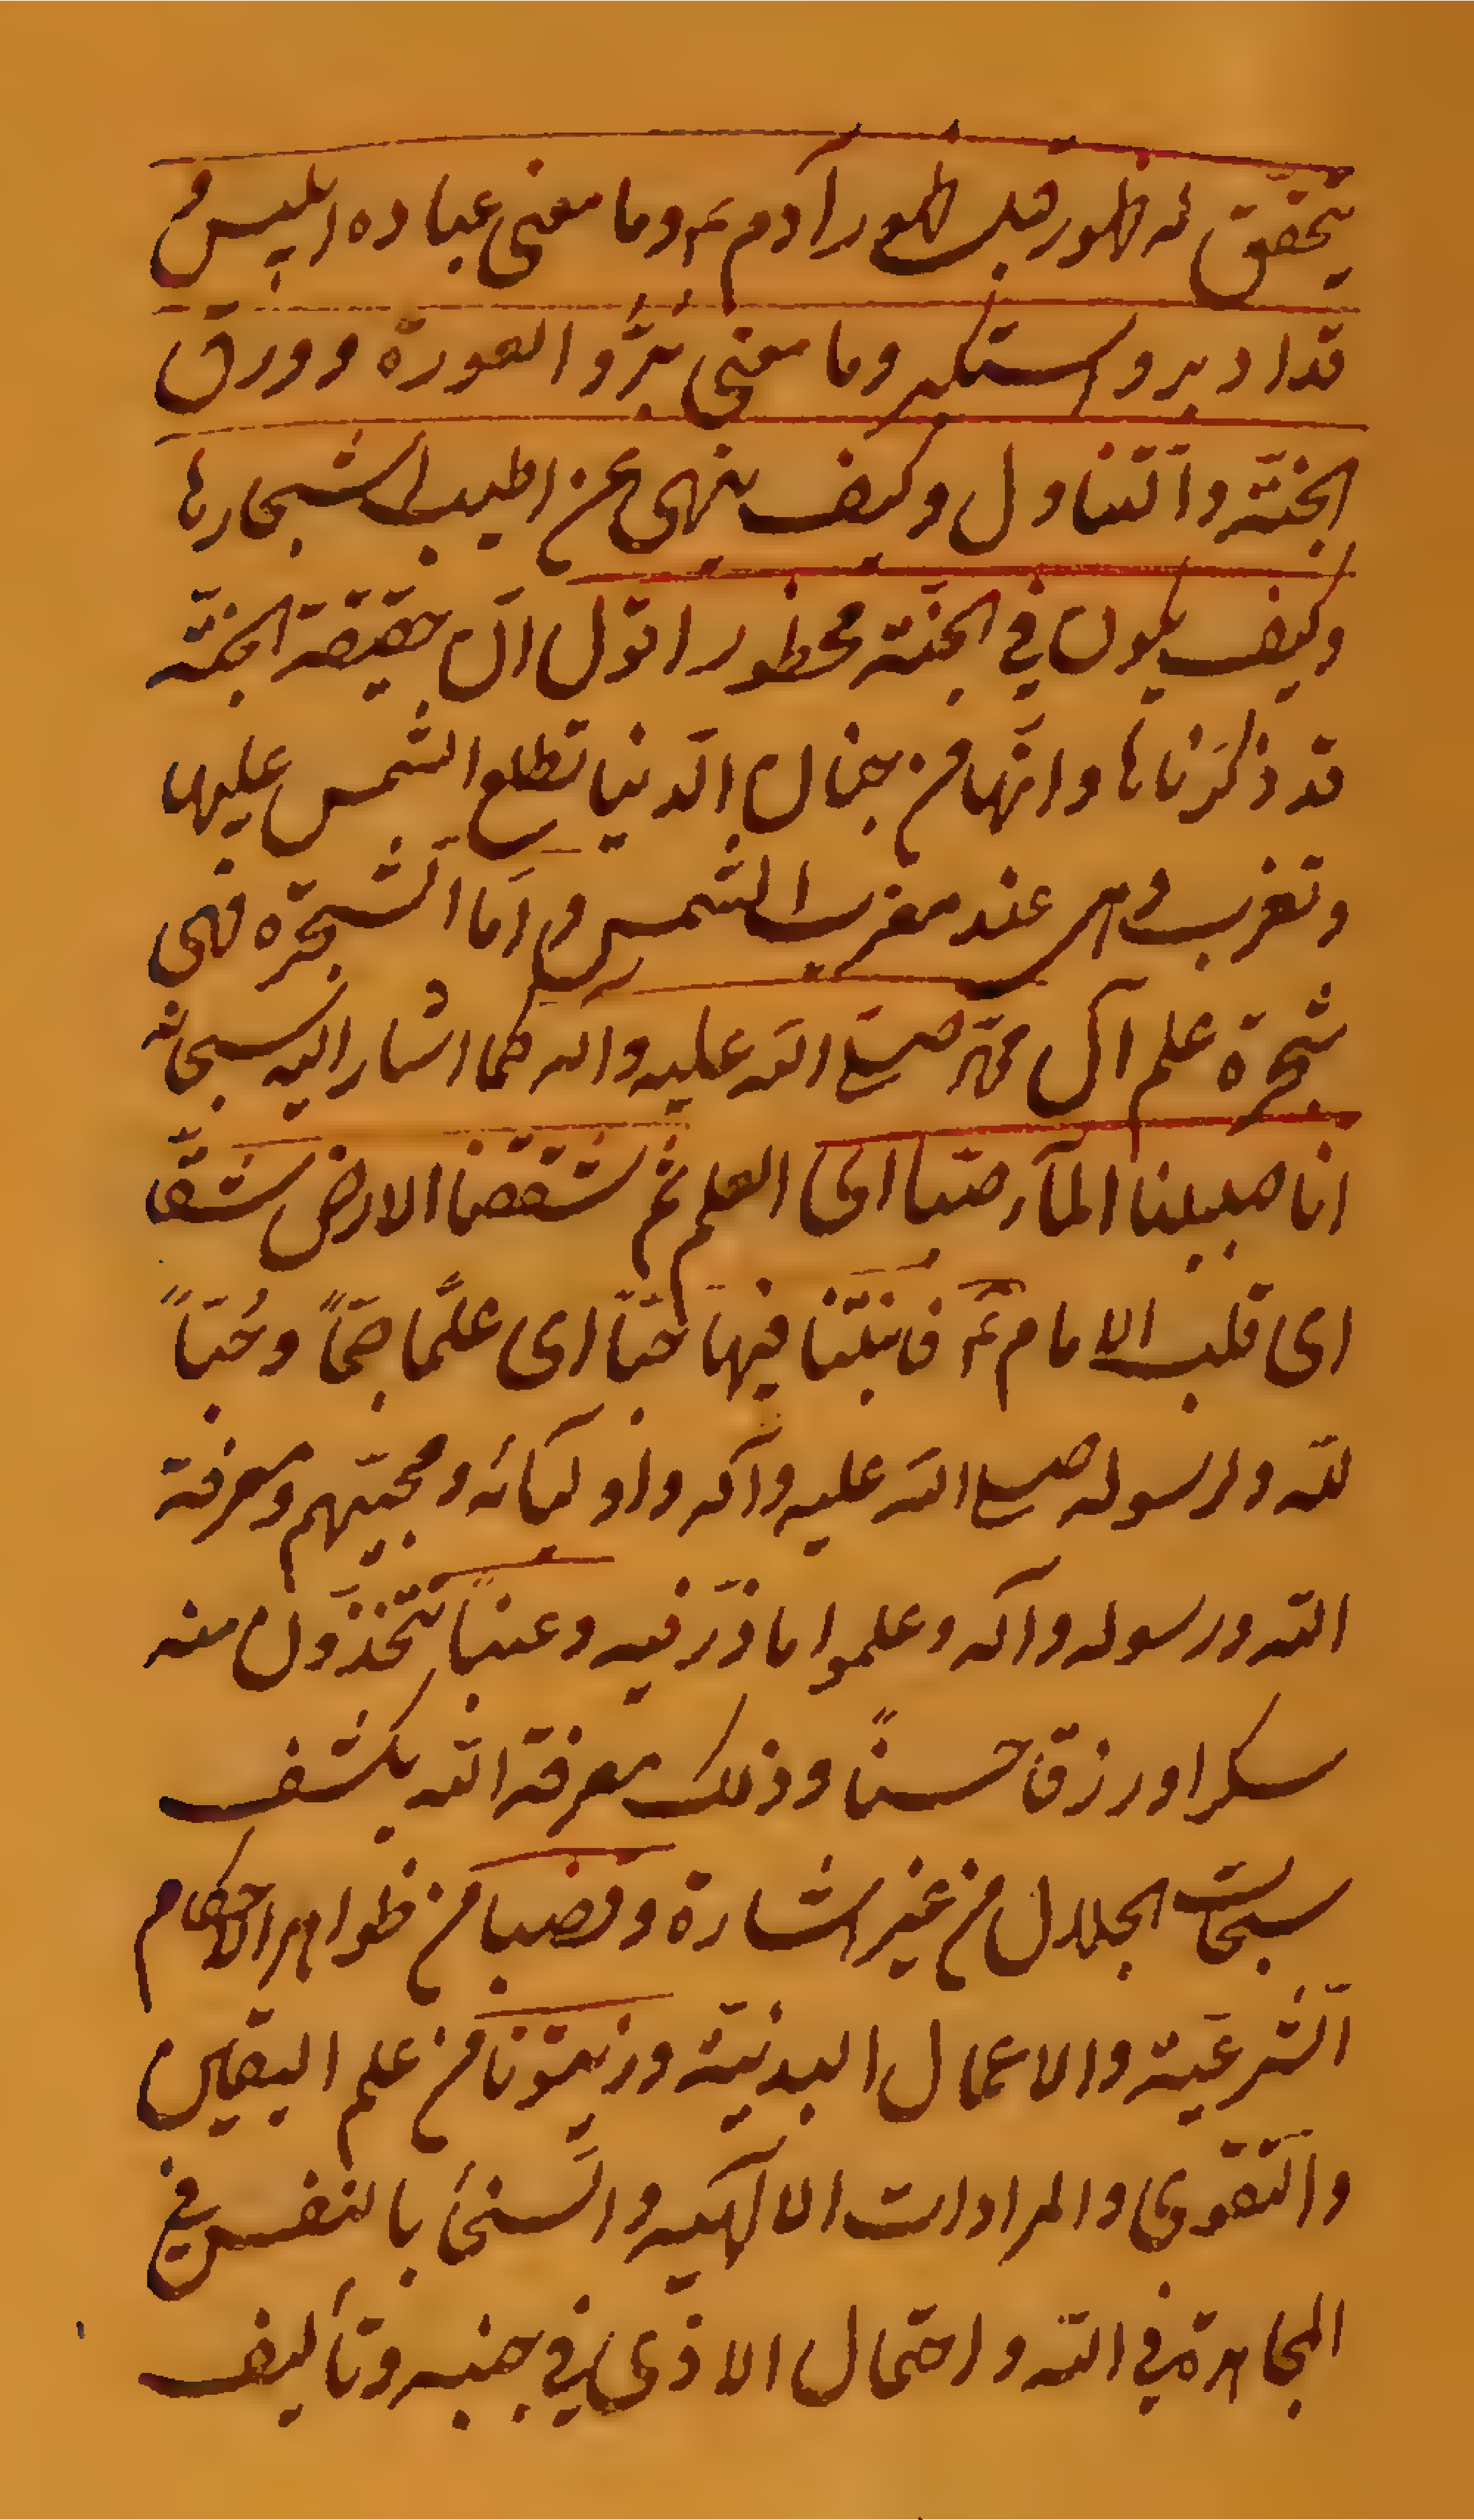 يتحقق له ظهور قبل ظهور آدم ع وما معنى عباده ابليس و
قد ادبر واستكبر وما معنى بُدُوّ العورة وورق
الجنّة والتّناول وكيف ينهى عن اطيب اشجارها
وكيف يكون في الجنّة محظور اقول انّ حقيقة الجنّة
قد ذكرناها وانّها من جنان الدّنيا تطلع الشّمس عليها
وتغرب وهى عند مغرب الشّمس وامّا الشّجرة فهى
شجرة علم آل محمّد صلى الله عليه واله كما اشار اليه سبحانه
انا صببنا المآء صبّا اى العلم ثمّ شققنا الارض شقّا
اى قلب الامام ع فانبتنا فيها حبّاً اى علمًا جمّاً وحُبّاً
لله ولرسوله صلى الله عليه وآله واوليائه ومحبّتهم ومعرفة
الله ورسوله وآله وعلموا ما ذرء فيه وعنباً تتّخذون منه
سكرا ورزقا حسناً وذلك معرفة الله بكشف
سبحات الجلال من غير اشارة وقضبا من ظواهر الاحكام
الشّرعيّة والاعمال البدنيّة وزيتونا من علم اليقين
والتّقوى والمرادات الالٓهيه والسّخآء بالنفس في
المجاهدة في الله واحتمال الاذى في جنبه وتأليف